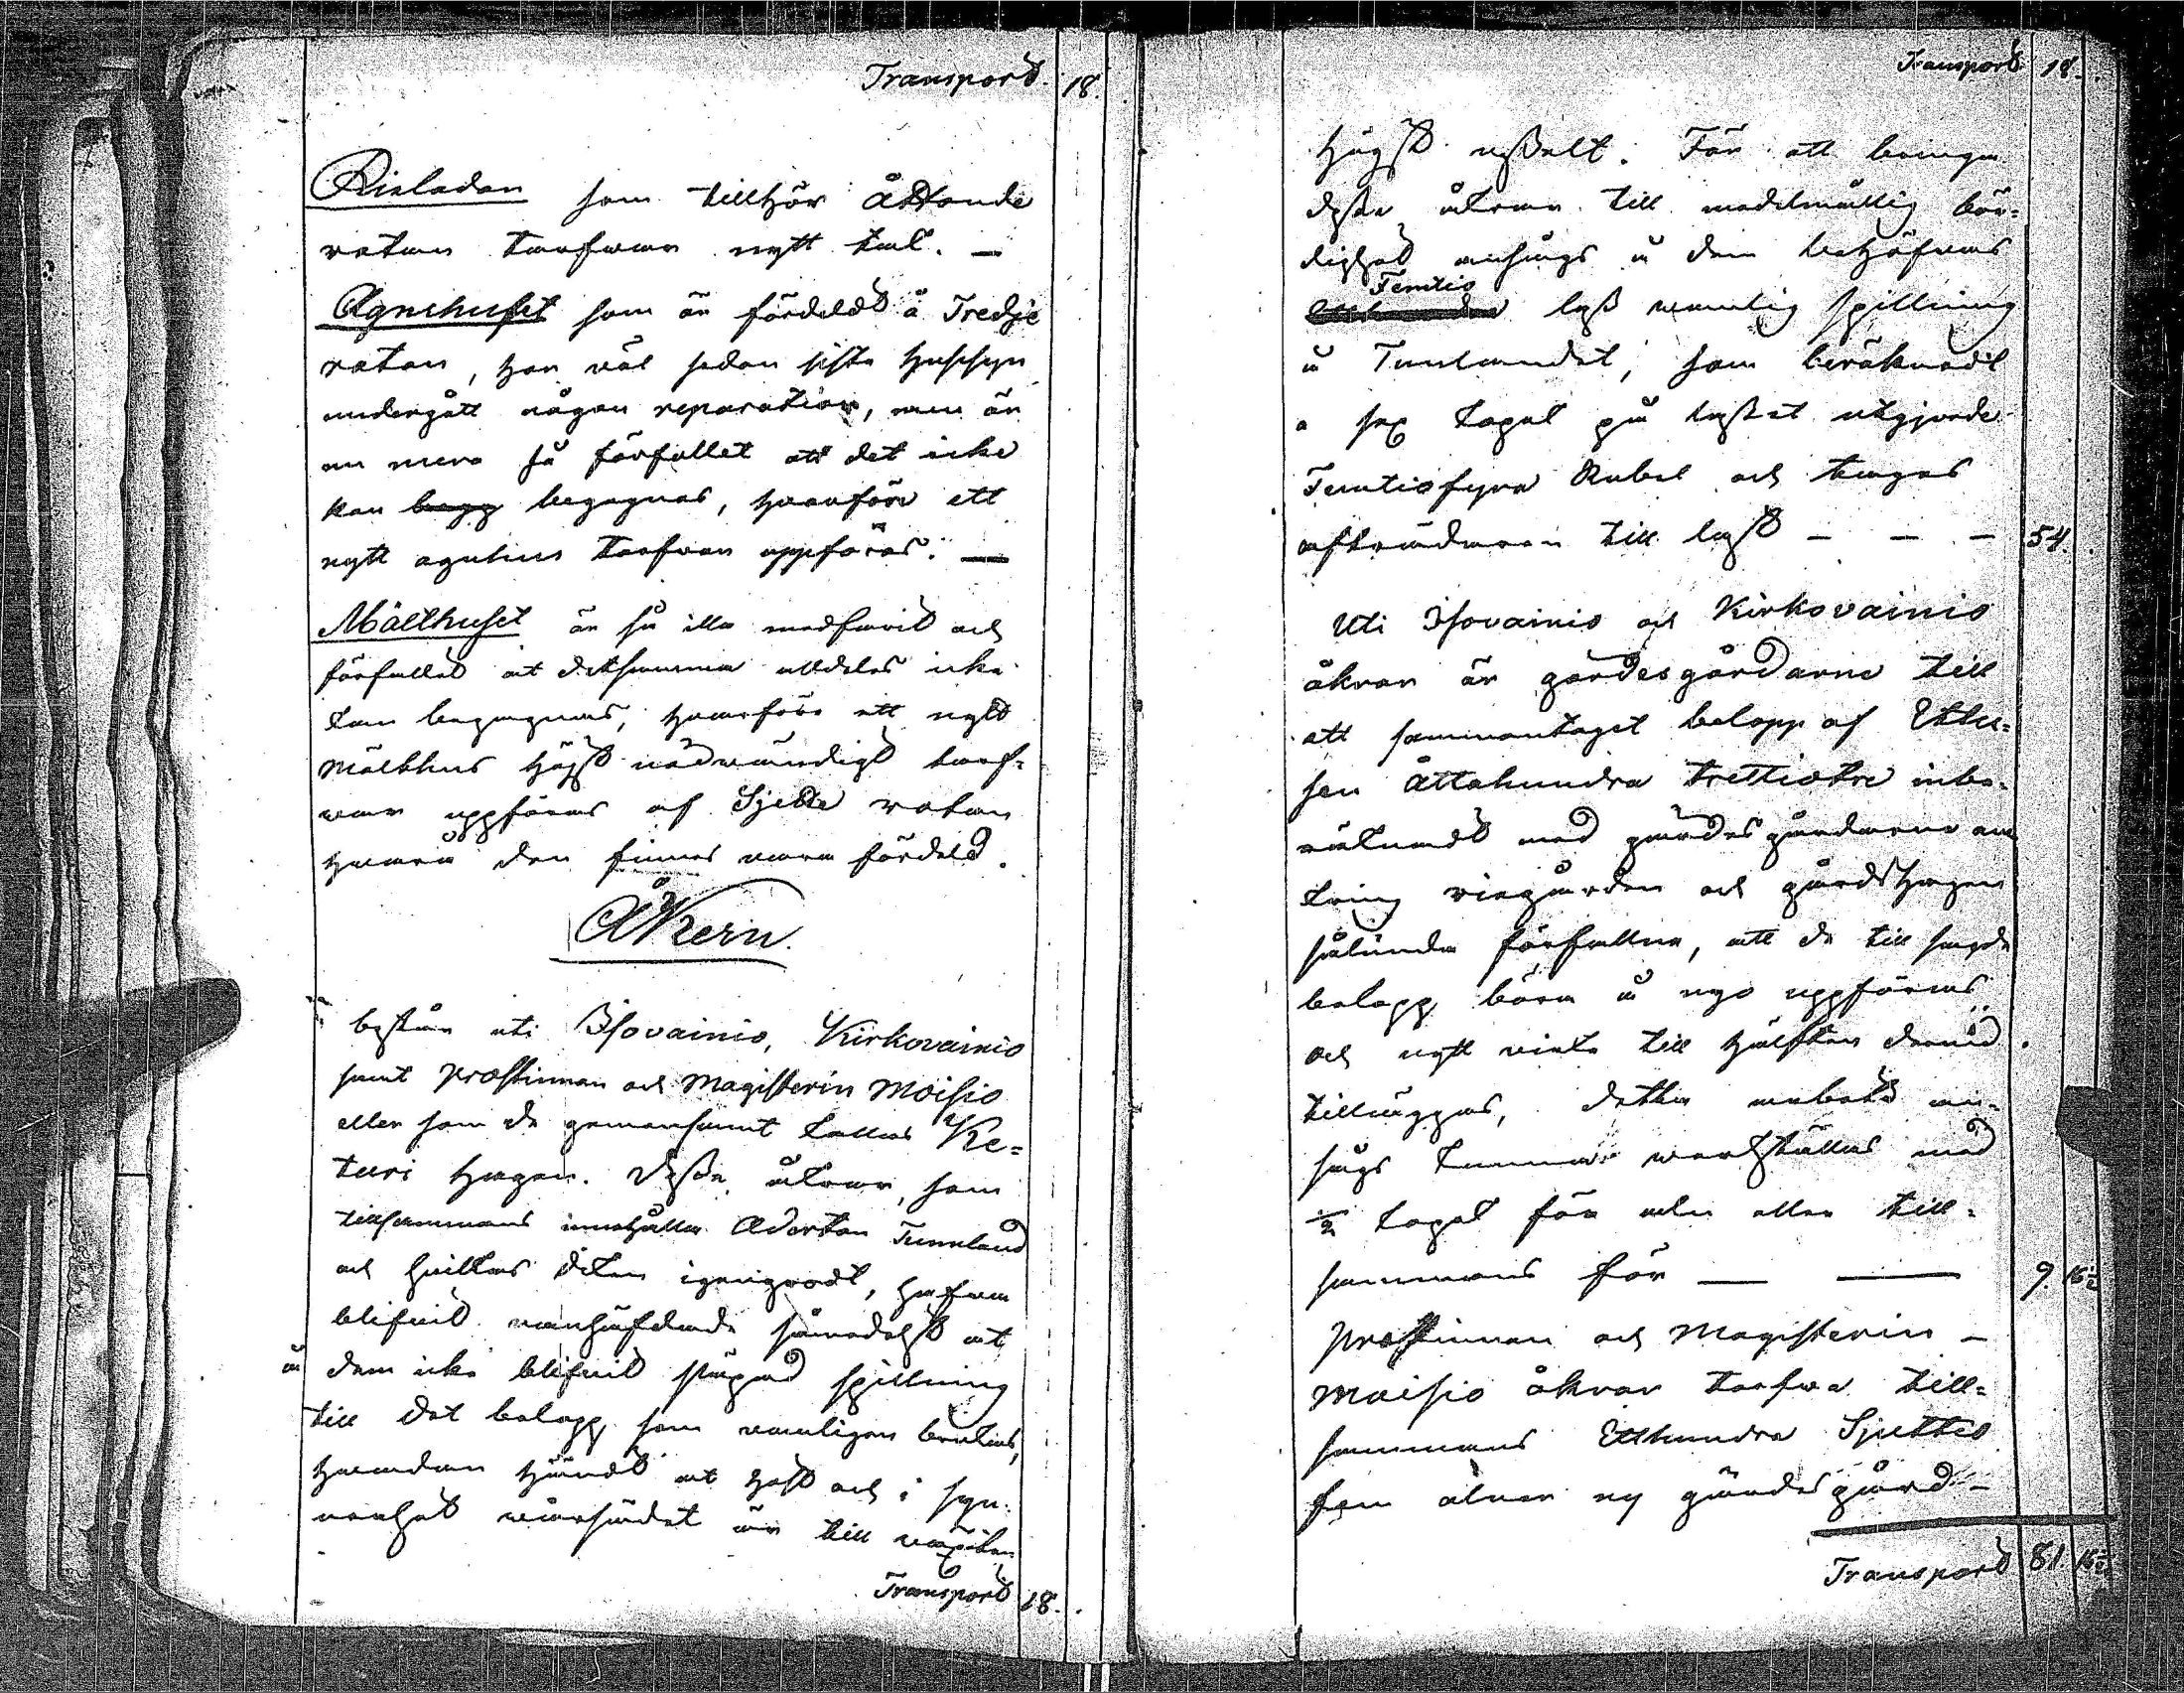 Transport. 18.
Risladan som tillhör Åttonde
rotan tarfwar nytt tak. —
Agnehuset som är fördeldt å Tredje
rotan, har väl sedan sista Hussyn
undergått någon reparation, men är
nu mera så förfallet att det icke
kan begg begagnas, hwarföre ett
nytt agnhus tarfwar uppföras. —
Mälthuset är så illa medfarit och
förfallet at detsamma alldeles icke
kan begagnas, hwarföre ett nytt
Mälthus högst nödwändigt tarf-
war uppföras af Sjette rotan
hwarå den finnes wara fördeld.
Åkern.
består uti Isovainio, Kirkovainio
samt Prostinnan och Magisterin Moisio
eller som de gemensamt kallas Ke-
turi hagen. Desse åkrar, som
tillsammans innehålla Aderton Tunnland
och hwilkas diken igengrodt, hafwa
blifwit wanhäfdade såmedelst at
å dem icke blifwit stäpad spillning
till det belopp som wanligen brukas,
hwaraf händt at höst och i syn-
nerhet wårsädet är till wäxten
Transport 18.
Transport 18.
Högst uselt. För att bringa
desse åkrar till medelmåttig bör-
dighet anses å dem behöfwas
Femtio
lass wanlig spillning
å Tunlandet, som beräknadt
a sex kopek på lasset utgjorde
Femtiofyra Rubel och tages
afträdaren till last — — — 54.
Uti Isovainio och Kirkovainio
åkrar är gärdesgårdarne till
ett sammantaget belopp af Ettu-
sen Åttahundra trettiotre inbe-
räknadt med gärdesgårdarne om
kring riegården och gårdshagen
sålunda förfallne, att de till sagde
belopp böra å nyo uppföras
och nytt virke till hälften dertill
tilläggas, detta arbete an-
sågs kunna werkställas med
½ kopek för aln eller till-
sammans för — — 9. 16½
Prostinnan och Magisterin —
Moisio åkrar tarfwa till-
sammans Etthundra Sjuttio
fem alnar ny gärdesgård —
Transport 81. 16½